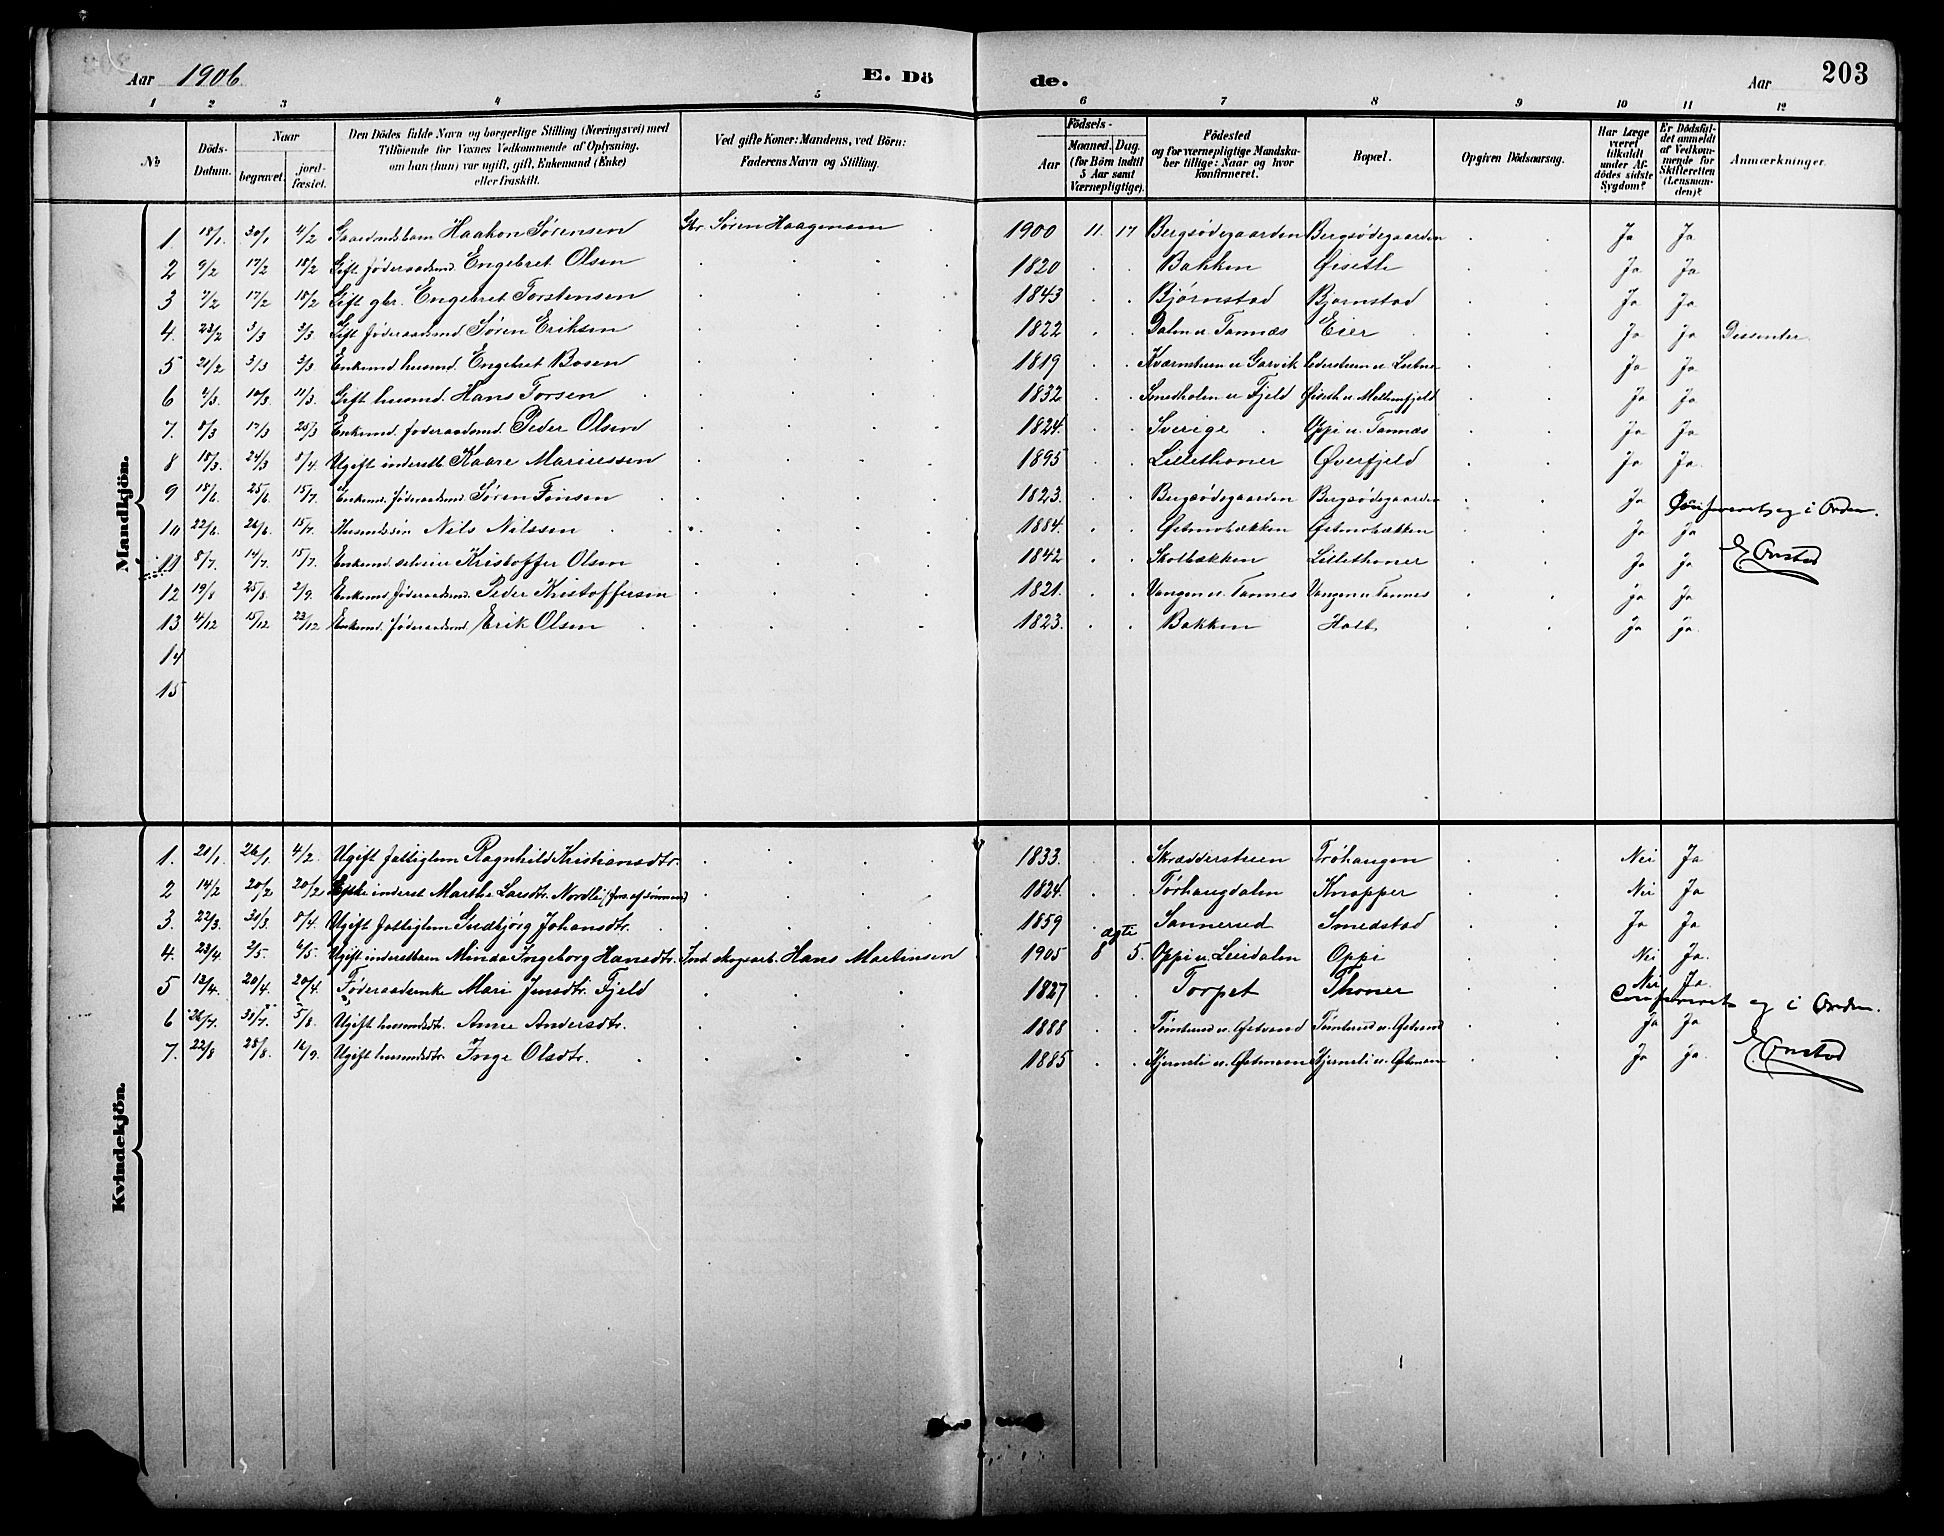 Aar 1906 E. Döde. Aar 203
1 2 3 4 5 6 7 8 9 10 11 12
No
Döds-Datum.
Naar
begravet. jordfæstet.
Den Dödes fulde Navn og borgerlige Stilling (Næringsvei) med
Tilföiende for Voxnes Vedkommende af Oplysning,
om han (hun) var ugift, gift, Enkemand (Enke)
eller fraskilt.
Ved gifte Koner: Mandens, ved Börn:
Faderens Navn og Stilling.
Födsels-
Aar Maaned. Dag. (for Börn indtil 5 Aar samt Værnepligtige).
Födested
og for værnepligtige Mandskaber tillige: Naar og hvor konfirmeret.
Bopæl.
Opgiven Dödsaarsag.
Har Læge været tilkaldt under Afdödes sidste Sygdom?
Er Dödsfaldet anmeldt af Vedkommende for Skifteretten (Lensmanden)?
Anmærkninger.
Mandkjön.
1 18/1 30/1 4/2 Gaardmdsbarn Haakon Sørensen Gbr. Søren Haagensen 1900 11. 17 Bergsødegaarden Bergsødegaarden Ja Ja
2 9/2 17/2 18/2 Gift føderaadsmd. Engebret Olsen 1820 Bakken Øiseth Ja Ja
3 7/2 17/2 18/2 Gift gbr. Engebret Torstensen 1843 Bjørnstad Bjørnstad Ja Ja
4. 23/2 3/3 3/3 Gift føderaadsmd Søren Eriksen 1822 Dalen u. Tannæs Eier Ja Ja Dessenter
5 21/2 3/3 3/3 Enkemd. husmd. Engebret Bosen 1819 Kværnstuen u Garvik Ja Ja
6 4/3 10/3 11/3 Gift husmd. Hans Torsen 1832 Smedholen u Fjeld Øiseth u Mellemfjeld Ja Ja
7. 8/3 17/3 25/3 Enkemd. føderaadsmd. Peder Olsen 1824. Sverige Oppi u. Tannæs Ja Ja
8 18/3. 24/3 8/4. Ugift inderstb. Kaare Mariussen 1895 Lillethoner Øverfjeld Ja Ja.
9 18/6 25/6 15/7. Enkemd. føderaadsmd. Søren Finsen 1823. Bergsødegaarden Bergsødegaarden Ja
Confereret og i Orden.
10 22/6. 26/6. 15/7. Husmdssøn Nils Nilssen 1884. Østmobækken Østmobækken Ja Ja
E. Onstad
11 8/7. 14/7. 15/7. Enkemd. selveier Kristoffer Olsen 1842 Skolbakken Lillethoner Ja Ja
12 19/8 25/8. 2/9. Enkemd. føderaadsmd. Peder Kristoffersen 1821. Vangen u. Tannes Vangen u. Tannes Ja Ja
13 4/12 15/12 23/12 Enkemd. føderaadsmd Erik Olsen 1823. Bakken Holt Ja Ja.
14
15
Kvindekjön.
1. 21/1. 26/1 4/2. Ugift fattiglem Ragnhild Kristiansdtr. 1833. Skrædderstuen Trøhaugen Nei Ja
2 14/2 20/2 20/2 inderst Marthe Larsdtr. Nordli 1824. Tørhaugdalen Knapper Nei Ja
3. 22/3. 30/3. 8/4. Ugift fattiglem Gudbjørg Johansdtr. 1859 Sannerud Smedstad Ja Ja
ægte
4. 23/4. 3/5. 6/5. Ugift inderstbarn Minda Ingeborg Hansdtr. Ind. skogsarb. Hans Martinsen 1905 8 5. Oppi u. Leirdalen Oppi Nei Ja.
5 12/4. 20/4. 20/4. Føderaadsenke Mari Jensdtr. Fjeld 1827 Torpet Thoner Nei Ja
Confereret og i Orden.
6 26/7. 30/7. 5/8. Ugift husmdsdtr. Anne Andersdtr. 1888 Tømterud u. Østvand Tømterud u. Østvand Ja Ja
7. 22/8 28/8. 16/9. Ugift husmdsdtr. Inge Olsdtr. 1885 Hjerneli u. Østmoen Hjerneli u. Østmoen Ja Ja.
E. Onstad